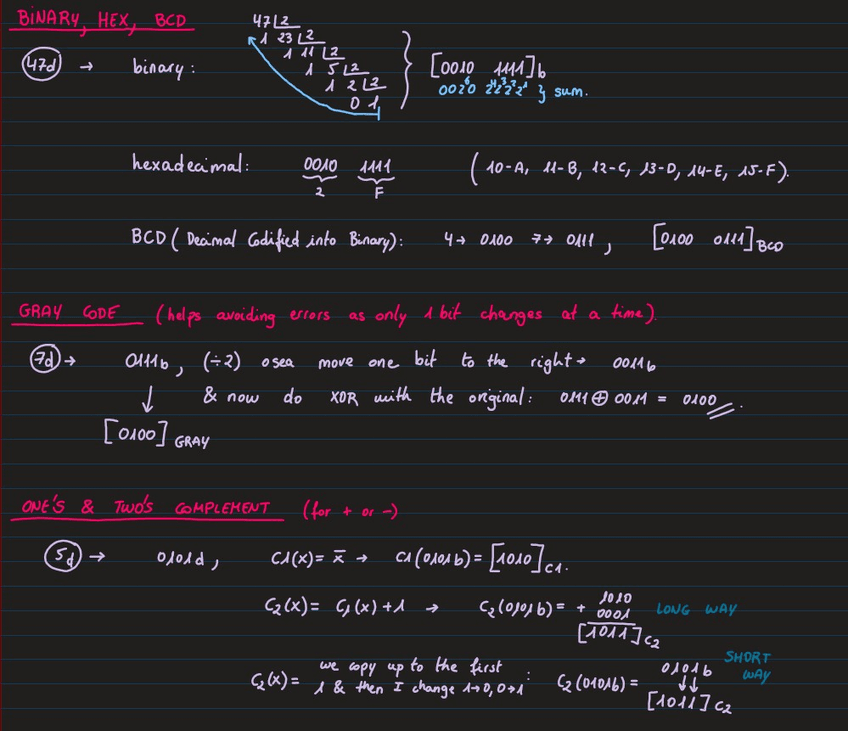 BINARY, HEX, BCD
47 2
1 23 2
1 11 2
1 5 2
1 2 2
0 1
47d → binary: } [0010 1111]b
002⁵0 2⁴2³2²2¹ } sum.
hexadecimal: 0010 1111 (10-A, 11-B, 12-C, 13-D, 14-E, 15-F).
2 F
BCD (Decimal Codified into Binary): 4→ 0100 7→ 0111, [0100 0111]BCD
GRAY CODE (helps avoiding errors as only 1 bit changes at a time).
7d → 0111b, (÷2) osea move one bit to the right→ 0011b
↓ & now do XOR with the original: 0111 ⊕ 0011 = 0100.
[0100] GRAY
ONE'S & TWO'S COMPLEMENT (for + or -)
5d → 0101d, C1(x)= x̅ → C1(0101b)= [1010]C1.
C2(x)= C1(x)+1 → C2(0101b)= + 1010 LONG WAY
0001
[1011]C2
C2(x)= we copy up to the first : C2(0101b)= 0101b SHORT
1 & then I change 1→0, 0→1 ↓↓ WAY
[1011]C2